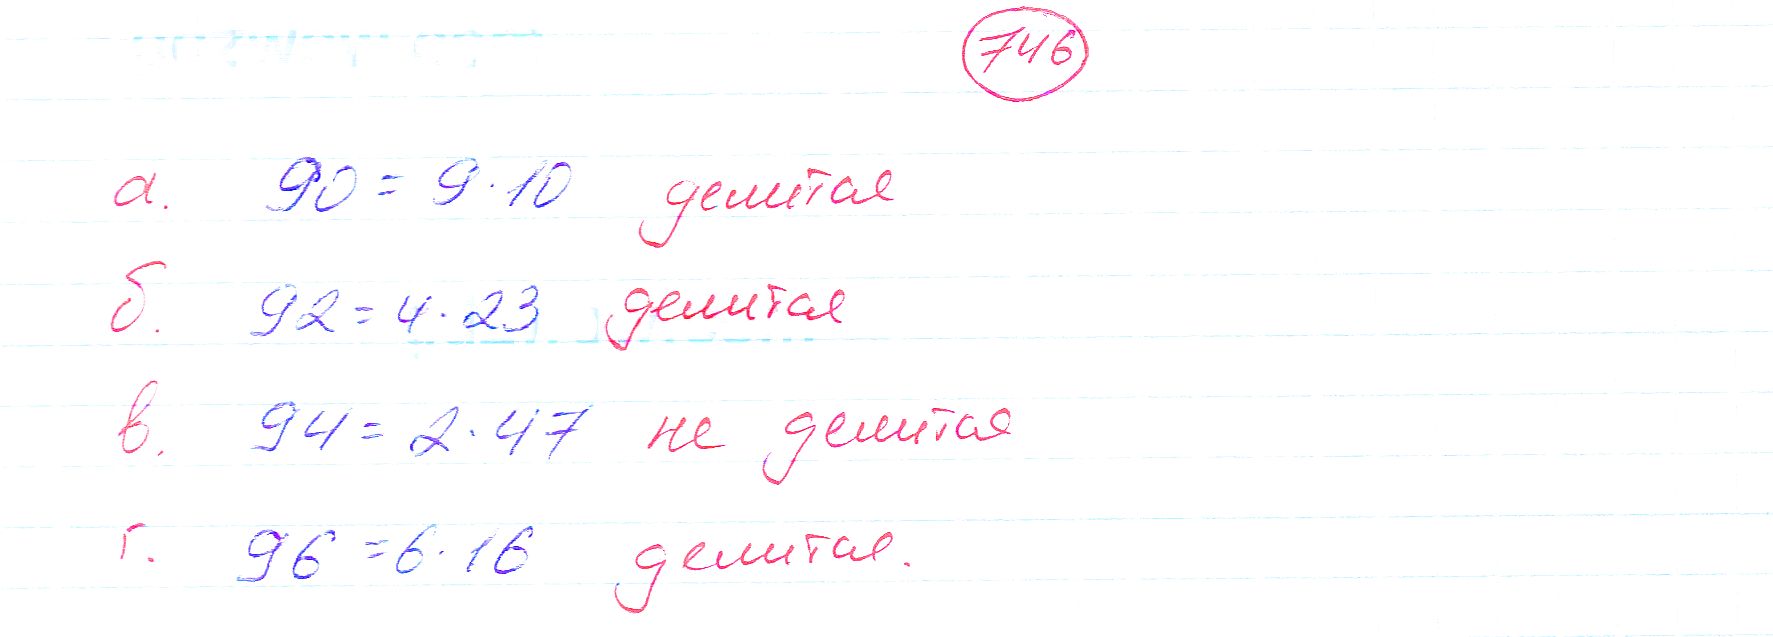 746
а. 90 = 9 · 10 делится
б. 92 = 4 · 23 делится
в. 94 = 2 · 47 не делится
г. 96 = 6 · 16 делится.